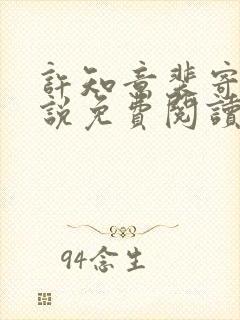 許知意裴寄
說免費閱讀
94念生